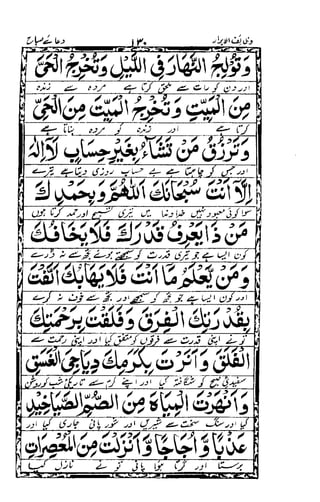 وظائف الابرار ۱۳۰ دعائے صباح
وَتُوْلِجُ النَّهَارَ فِي اللَّيْلِ وَتُخْرِجُ الْحَيَّ
اور دن کو رات سے
مِنَ الْمَيِّتِ وَتُخْرِجُ الْمَيِّتَ مِنَ الْحَيِّ
کرتا ہے اور زندہ کو مردہ بناتا ہے
وَتَرْزُقُ مَنْ تَشَاءُ بِغَيْرِ حِسَابٍ لَا اِلٰهَ
اور جس کو چاہتا ہے بے حساب روزی دیتا ہے تیرے
اِلَّا اَنْتَ سُبْحَانَكَ اللّٰهُمَّ وَبِحَمْدِكَ
سوا کوئی معبود نہیں خداوندا میں تیری تسبیح اور حمد کرتا ہوں
مَنْ ذَا يَعْرِفُ قَدْرَكَ فَلَا يَخَافُكَ
کون ایسا ہے جو تیری قدرت کو سمجھتے ہوئے تجھ سے نہ ڈرے
وَمَنْ يَعْلَمُ مَا اَنْتَ فَلَا يَهَابُكَ اَلَّفْتَ
اور کون ایسا ہے جو تجھ کو سمجھے اور تجھ سے خوف نہ کرے
بِقُدْرَتِكَ الْفِرَقَ وَفَلَقْتَ بِرَحْمَتِكَ
تو نے اپنی قدرت سے فرقوں کو متفق کیا اور اپنی رحمت سے
الْفَلَقَ وَاَنَرْتَ بِكَرَمِكَ دَيَاجِيَ الْغَسَقِ
سفیدی صبح کو شگافتہ کیا اور اپنے کرم سے تاریکی شب کو روشن
وَاَنْهَرْتَ الْمِيَاهَ مِنَ الصُّمِّ الصَّيَاخِيْدِ
کیا اور سنگ سخت سے شیریں اور شور پانی جاری کیا اور
عَذْبًا وَّاُجَاجًا وَّاَنْزَلْتَ مِنَ الْمُعْصِرَاتِ
برستا اور پانی تو نے نازل کیا